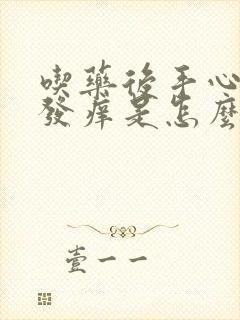 喫藥後手心
發癢是怎麼
壹一一